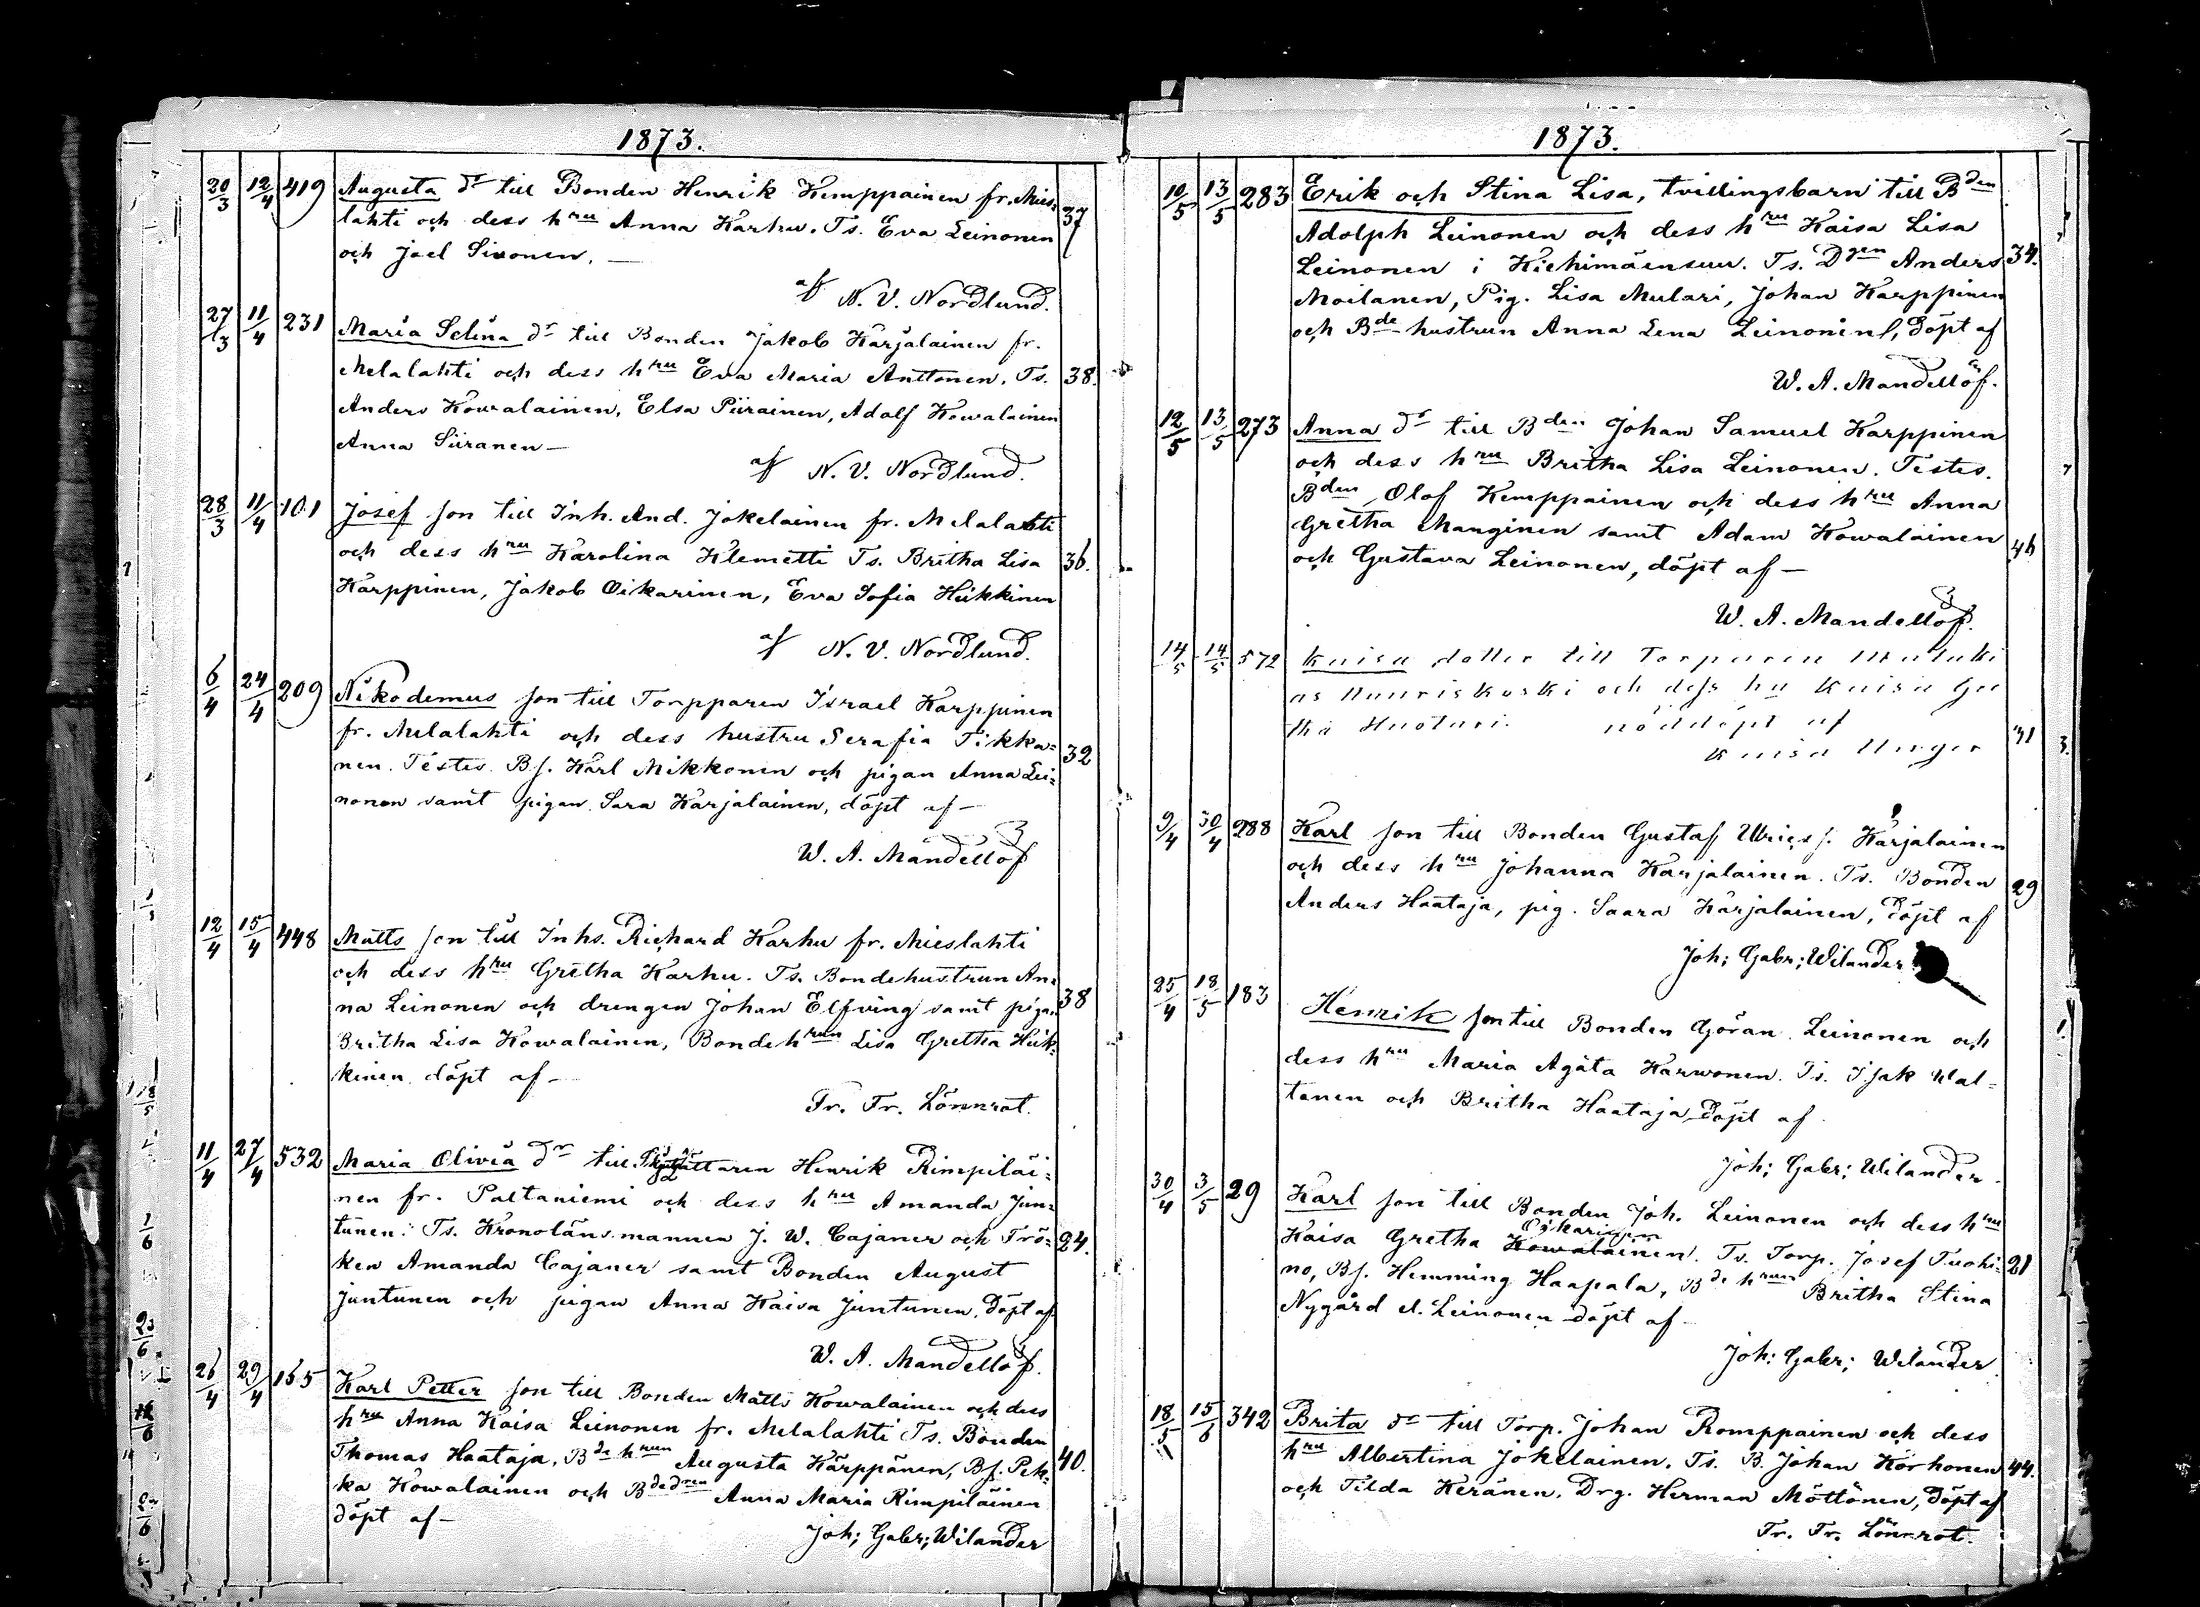 1873.
20/3 12/4 419 Augusta dr till Bonden Henrik Kemppainen fr. Mies-
lahti och dess hru Anna Karhu. Ts. Eva Leinonen 37
och Joel Sivonen. —
af N. V. Nordlund.
27/3 11/4 231 Maria Selina dr till Bonden Jakob Karjalainen fr.
Melalahti och dess hru Eva Maria Anttonen. Ts. 38.
Anders Kowalainen, Elsa Piirainen, Adolf Kowalainen
Anna Siiranen —
af N. V. Nordlund.
28/3 11/4 101 Josef son till Inh. And. Jokelainen fr. Melalahti
och dess hru Karolina Klemetti Ts. Britha Lisa 36.
Karppinen, Jakob Oikarinen, Eva Sofia Heikkinen
af N. V. Nordlund.
6/4 24/4 209 Nikodemus son till Torpparen Israel Karppinen
fr. Melalahti och dess hustru Serafia Tikka= 32
nen. Testes. Bs. Karl Mikkonen och pigan Anna Lei-
nonen samt pigan Sara Karjalainen, döpt af —
W. A. Mandellöf
12/4 15/4 448 Matts son till Inhs. Richard Karhu fr. Mieslahti
och dess hru Gretha Karhu. Ts. Bondehustrun An-
na Leinonen och drengen Johan Elfving samt pigan 38
Britha Lisa Kowalainen, Bondehrun Lisa Gretha Heik-
kinen döpt af —
Fr. Fr. Lönnrot.
11/4 27/4 532 Maria Olivia dr till Henrik Rimpiläi-
nen fr. Paltaniemi och dess hru Amanda Jun-
tunen. Ts. Kronolänsmannen J. W. Cajaner och Frö- 24.
ken Amanda Cajaner samt Bonden August
Juntunen och pigan Anna Kaisa Juntunen. Döpt af
W. A. Mandellöf.
26/4 29/4 165 Karl Petter son till Bonden Matts Kowalainen och dess
hru Anna Kaisa Leinonen fr. Melalahti Ts. Bonden
Thomas Haataja, Bde hrun Augusta Kärppänen, Bs. Pek- 40.
ka Kowalainen och Bdedren Anna Maria Rimpiläinen
döpt af —
Joh; Gabr; Wilander
1873.
10/5 13/5 283 Erik och Stina Lisa, tvillingsbarn till Bden
Adolph Leinonen och dess hru Kaisa Lisa
Leinonen i Kiehimäensuu. Ts. Dgen Anders 34.
Moilanen, Pig. Lisa Mulari, Johan Karppinen
och Bde hustrun Anna Lena Leinonen, Döpt af
W. A. Mandellöf.
12/5 13/5 273 Anna dr till Bden Johan Samuel Karppinen
och dess hru Britha Lisa Leinonen. Testes.
Bden Olof Kemppainen och dess hru Anna
Gretha Manginen samt Adam Kowalainen 46
och Gustava Leinonen, döpt af —
W. A. Mandellöf.
14/5 14/5 572 Kaisa dotter till Torparen
och dess hu Kaisa Gre
tha Huotari. nöddöpt af 31
Kaisa Unger
9/4 30/4 288 Karl son till Bonden Gustaf Ulrics s. Karjalainen
och dess hru Johanna Karjalainen. Ts. Bonden 29
Anders Haataja, pig. Saara Karjalainen, döpt af
Joh; Gabr; Wilander
25/4 18/5 183 Henrik son till Bonden Göran Leinonen och
dess hru Maria Agata Karwonen. Ts. Isak Wal-
tanen och Britha Haataja Döpt af
Joh; Gabr; Wilander.
30/4 3/5 29 Karl son till Bonden Joh. Leinonen och dess hru
Oikarinen
Kaisa Gretha Kowalainen. Ts. Torp. Josef Tuohi- 21
no, Bs. Hemming Haapala, Bde hrun Britha Stina
Nygård el. Leinonen döpt af —
Joh; Gabr; Wilander
18/5 15/6 342 Brita dr till Torp. Johan Romppainen och dess
hru Albertina Jokelainen. Ts. B. Johan Korhonen 44.
och Tilda Keränen. Drg. Herman Möttönen, Döpt af
Fr. Fr. Lönnrot.